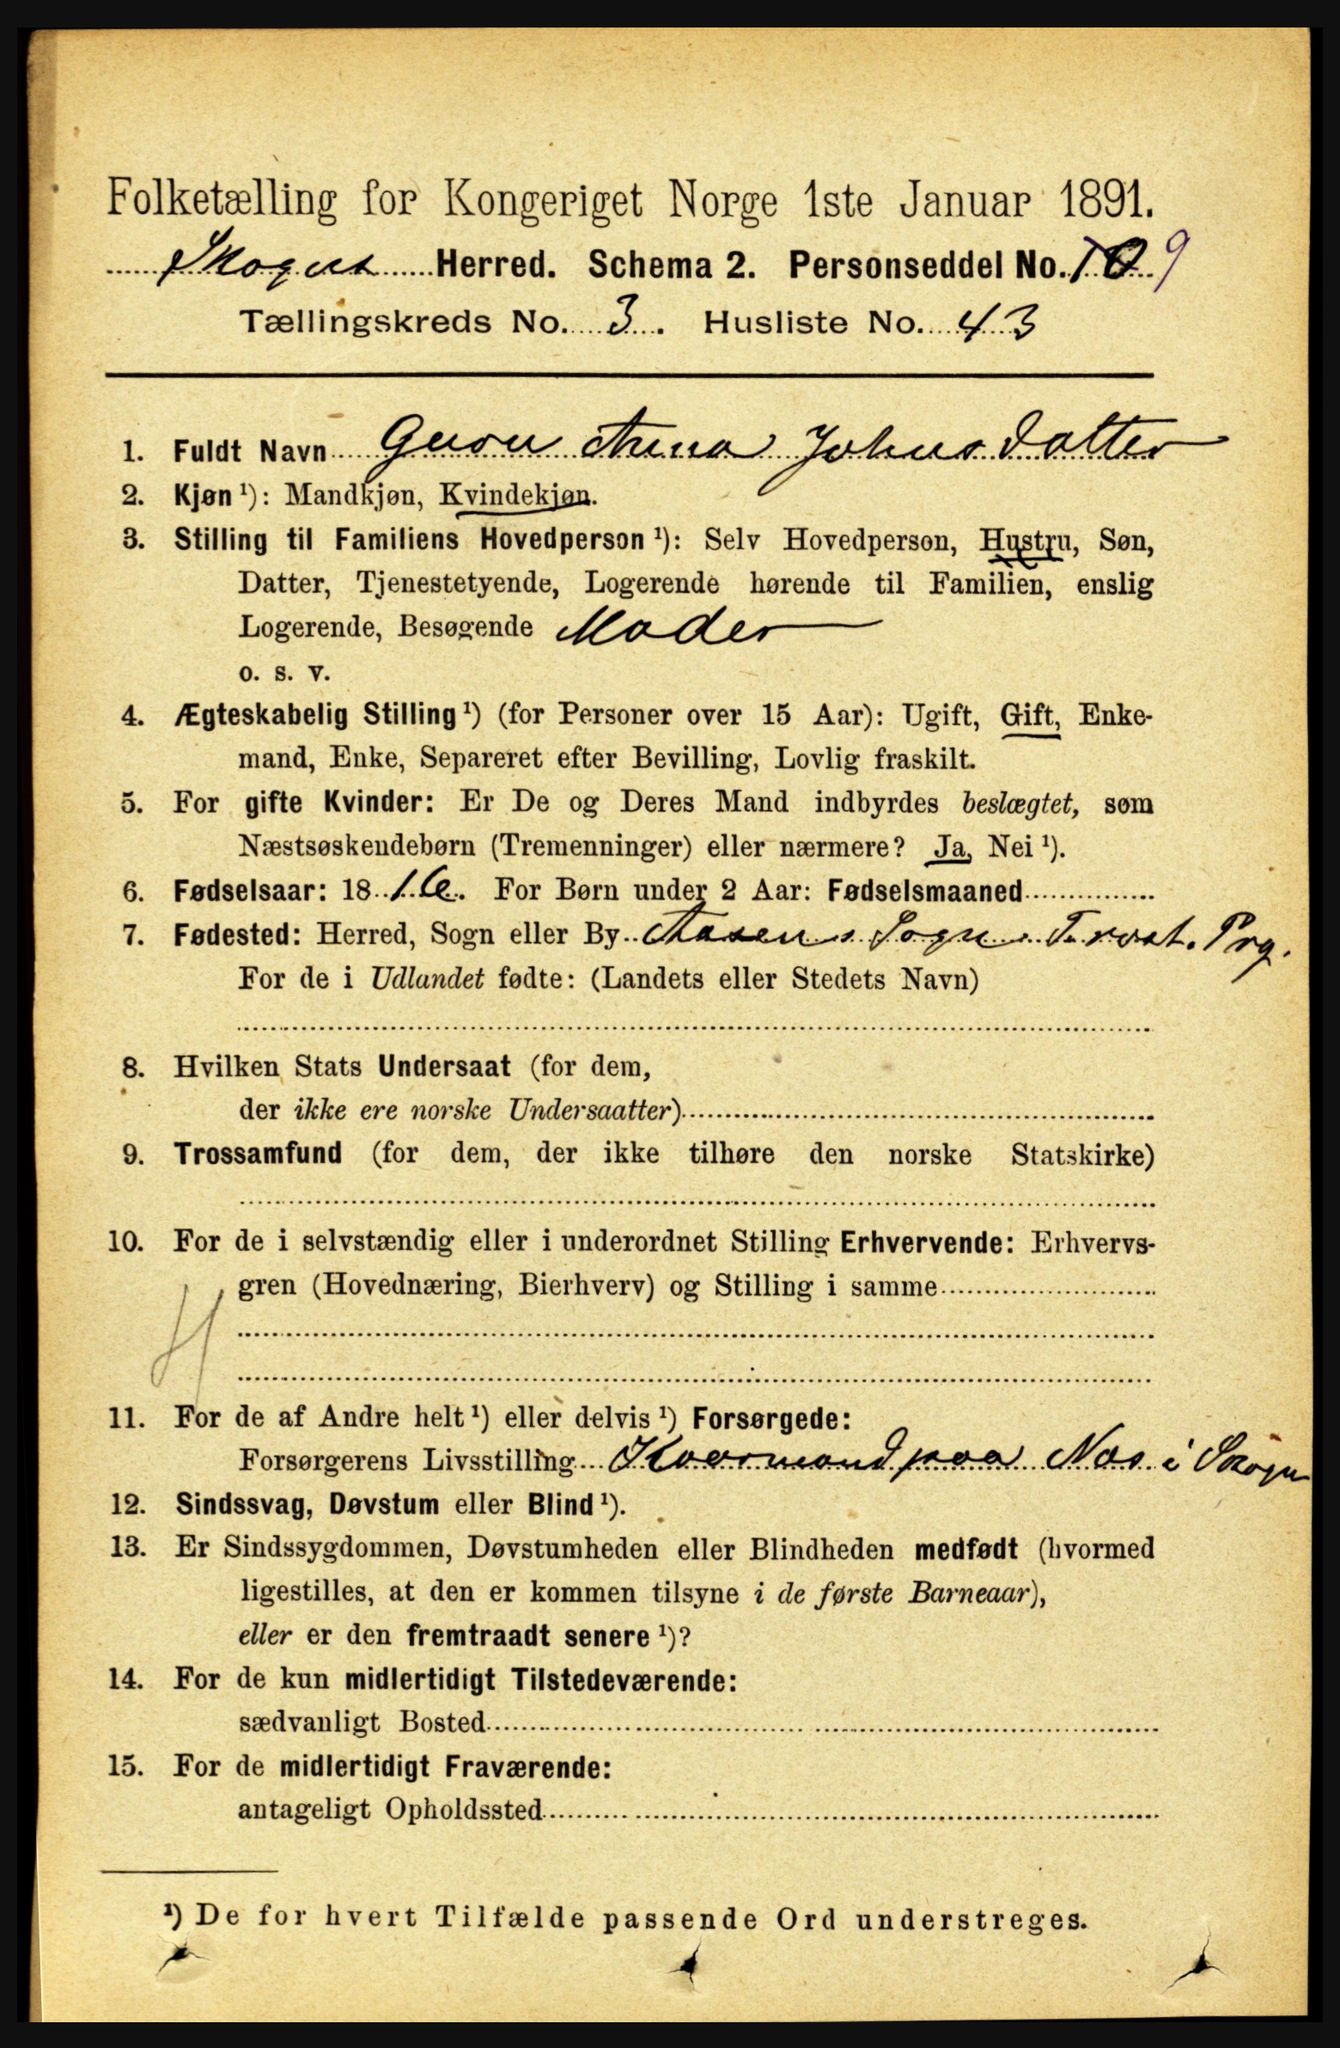 Folketælling for Kongeriget Norge 1ste Januar 1891.
Skogns Herred. Schema 2. Personseddel No. 10 9
Tællingskreds No. 3. Husliste No. 43
1. Fuldt Navn Guru Anna Johnsdatter
2. Kjøn ¹): Mandkjøn, Kvindekjøn.
3. Stilling til Familiens Hovedperson ¹): Selv Hovedperson, Hustru, Søn,
Datter, Tjenestetyende, Logerende hørende til Familien, enslig
Logerende, Besøgende Moder
o. s. v.
4. Ægteskabelig Stilling ¹) (for Personer over 15 Aar): Ugift, Gift, Enke-
mand, Enke, Separeret efter Bevilling, Lovlig fraskilt.
5. For gifte Kvinder: Er De og Deres Mand indbyrdes beslægtet, som
Næstsøskendebørn (Tremenninger) eller nærmere? Ja, Nei ¹).
6. Fødselsaar: 1816. For Børn under 2 Aar: Fødselsmaaned
7. Fødested: Herred, Sogn eller By Aasen Sogn Frost. Prg.
For de i Udlandet fødte: (Landets eller Stedets Navn)
8. Hvilken Stats Undersaat (for dem,
der ikke ere norske Undersaatter)
9. Trossamfund (for dem, der ikke tilhøre den norske Statskirke)
10. For de i selvstændig eller i underordnet Stilling Erhvervende: Erhvervs-
gren (Hovednæring, Bierhverv) og Stilling i samme
11. For de af Andre helt ¹) eller delvis ¹) Forsørgede:
Forsørgerens Livsstilling Kaarmand paa Næs i Skogn
12. Sindssvag, Døvstum eller Blind ¹).
13. Er Sindssygdommen, Døvstumheden eller Blindheden medfødt (hvormed
ligestilles, at den er kommen tilsyne i de første Barneaar),
eller er den fremtraadt senere ¹)?
14. For de kun midlertidigt Tilstedeværende:
sædvanligt Bosted
15. For de midlertidigt Fraværende:
antageligt Opholdssted
¹) De for hvert Tilfælde passende Ord understreges.